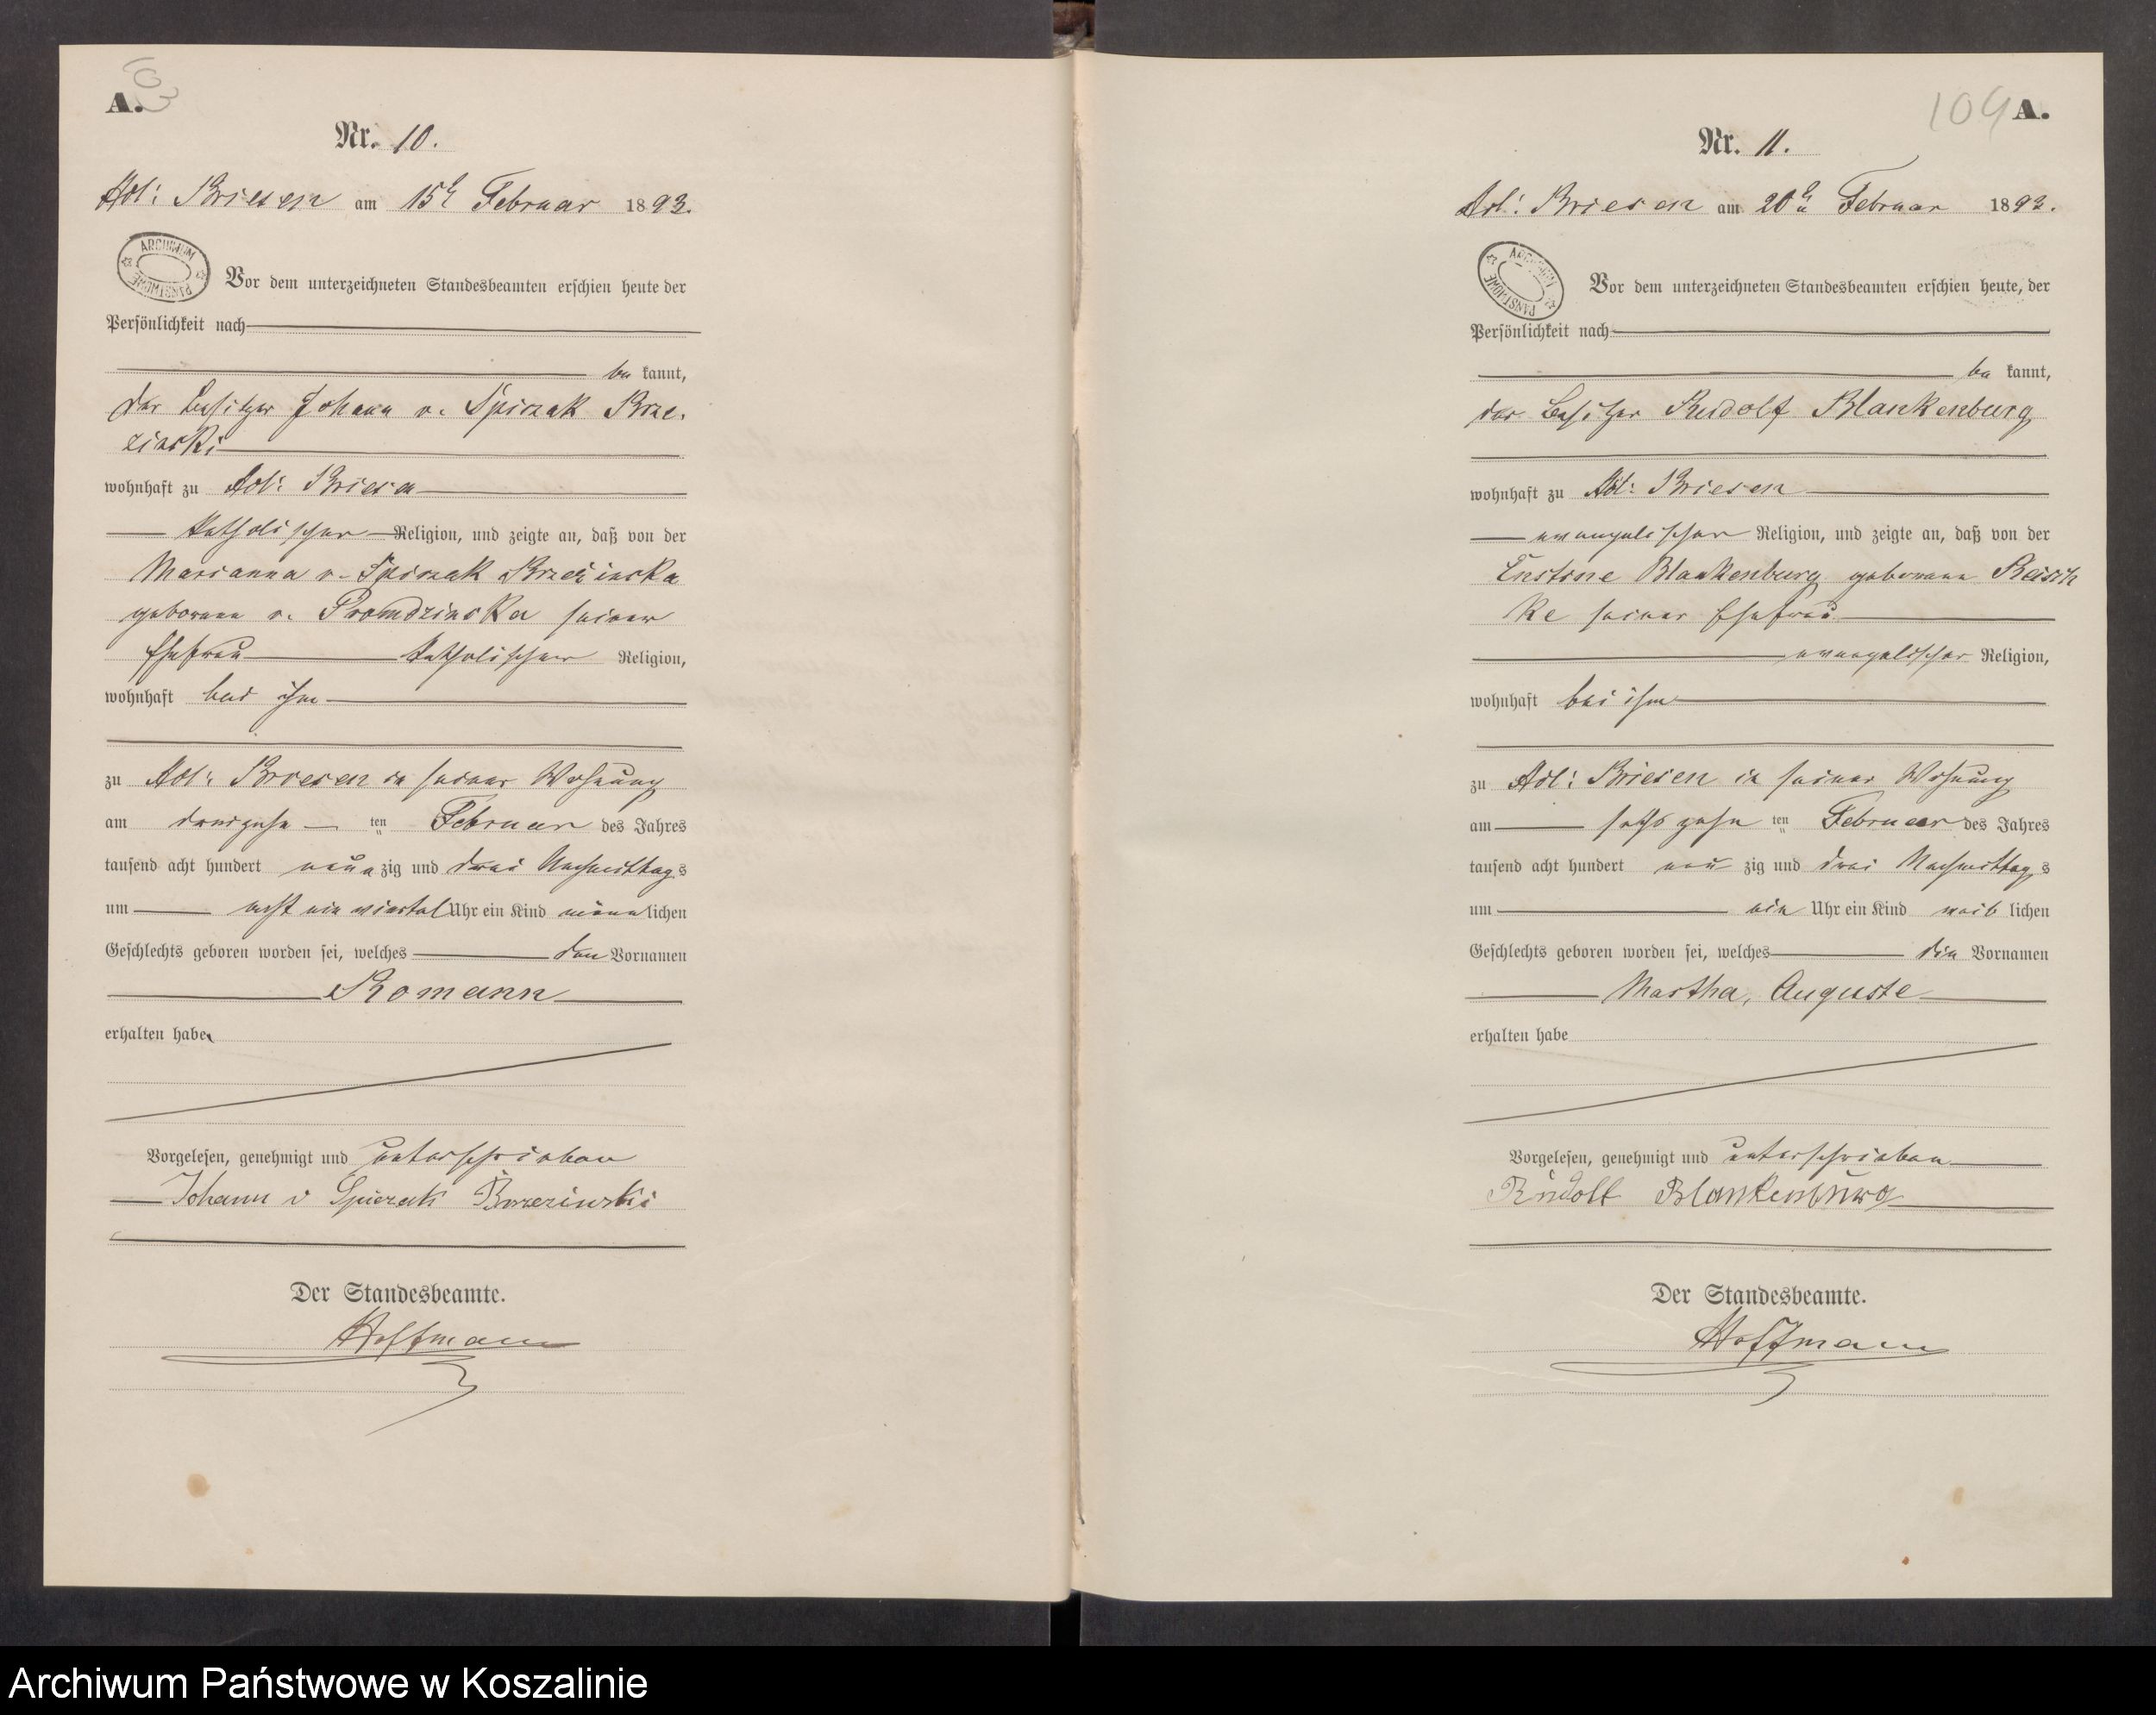 A.
103
Nr. 10.
Adl: Briesen am 15t Februar 1893.
ARCHIWUM PAŃSTWOWE
Vor dem unterzeichneten Standesbeamten erschien heute der
Persönlichkeit nach
be kannt,
der Besitzer Johann v. Spiczak Brze-
zinski
wohnhaft zu Adl: Briesen
katholischer Religion, und zeigte an, daß von der
Marianna v. Spiczak Brzezinska
geborene v. Prondzinska seiner
Ehefrau katholischer Religion,
wohnhaft bei ihm
zu Adl: Briesen in seiner Wohnung
am dreizehn ten Februar des Jahres
tausend acht hundert neun zig und drei Nachmittag s
um acht ein viertel Uhr ein Kind männ lichen
Geschlechts geboren worden sei, welches den Vornamen
Romann
erhalten habe
Vorgelesen, genehmigt und unterschrieben
Johann v Spiczak Brzezinski
Der Standesbeamte.
Hoffmann
104 A.
Nr. 11.
Adl: Briesen am 20t Februar 1893.
ARCHIWUM PAŃSTWOWE
Vor dem unterzeichneten Standesbeamten erschien heute, der
Persönlichkeit nach
be kannt,
der Besitzer Rudolf Blankenburg
wohnhaft zu Adl: Briesen
evangelischer Religion, und zeigte an, daß von der
Blankenburg geborene
ke seiner Ehefrau
evangelischer Religion,
wohnhaft bei ihm
zu Adl: Briesen in seiner Wohnung
am sechszehn ten Februar des Jahres
tausend acht hundert neun zig und drei Nachmittag s
um ein Uhr ein Kind weib lichen
Geschlechts geboren worden sei, welches die Vornamen
Martha, Auguste
erhalten habe
Vorgelesen, genehmigt und unterschrieben
Rudolf Blankenburg
Der Standesbeamte.
Hoffmann
Archiwum Państwowe w Koszalinie